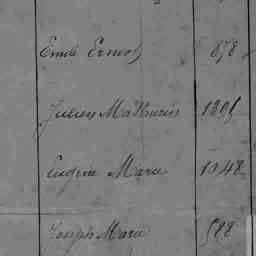 Emile Ernest 878
Julien Mathurin 1205
Eugène Marie 1048
Joseph Marie 588